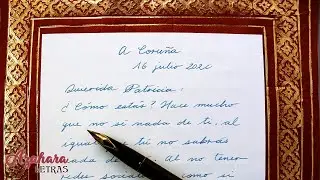 A Coruña
16 julio 202
Querida Patricia:
¿Cómo estás? Hace mucho
que no sí nada de ti, al
igual tú no sabrás
nada de Al no tener
redes como si
Azahara
LETRAS